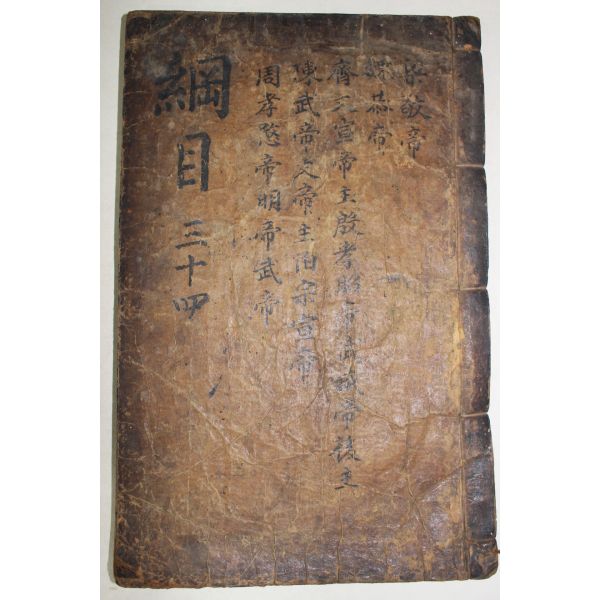 綱目 三十四
敬帝
恭帝
齊文宣帝主殷孝昭帝武成帝後主
陳武帝文帝主伯宗宣帝
周孝愍帝明帝武帝